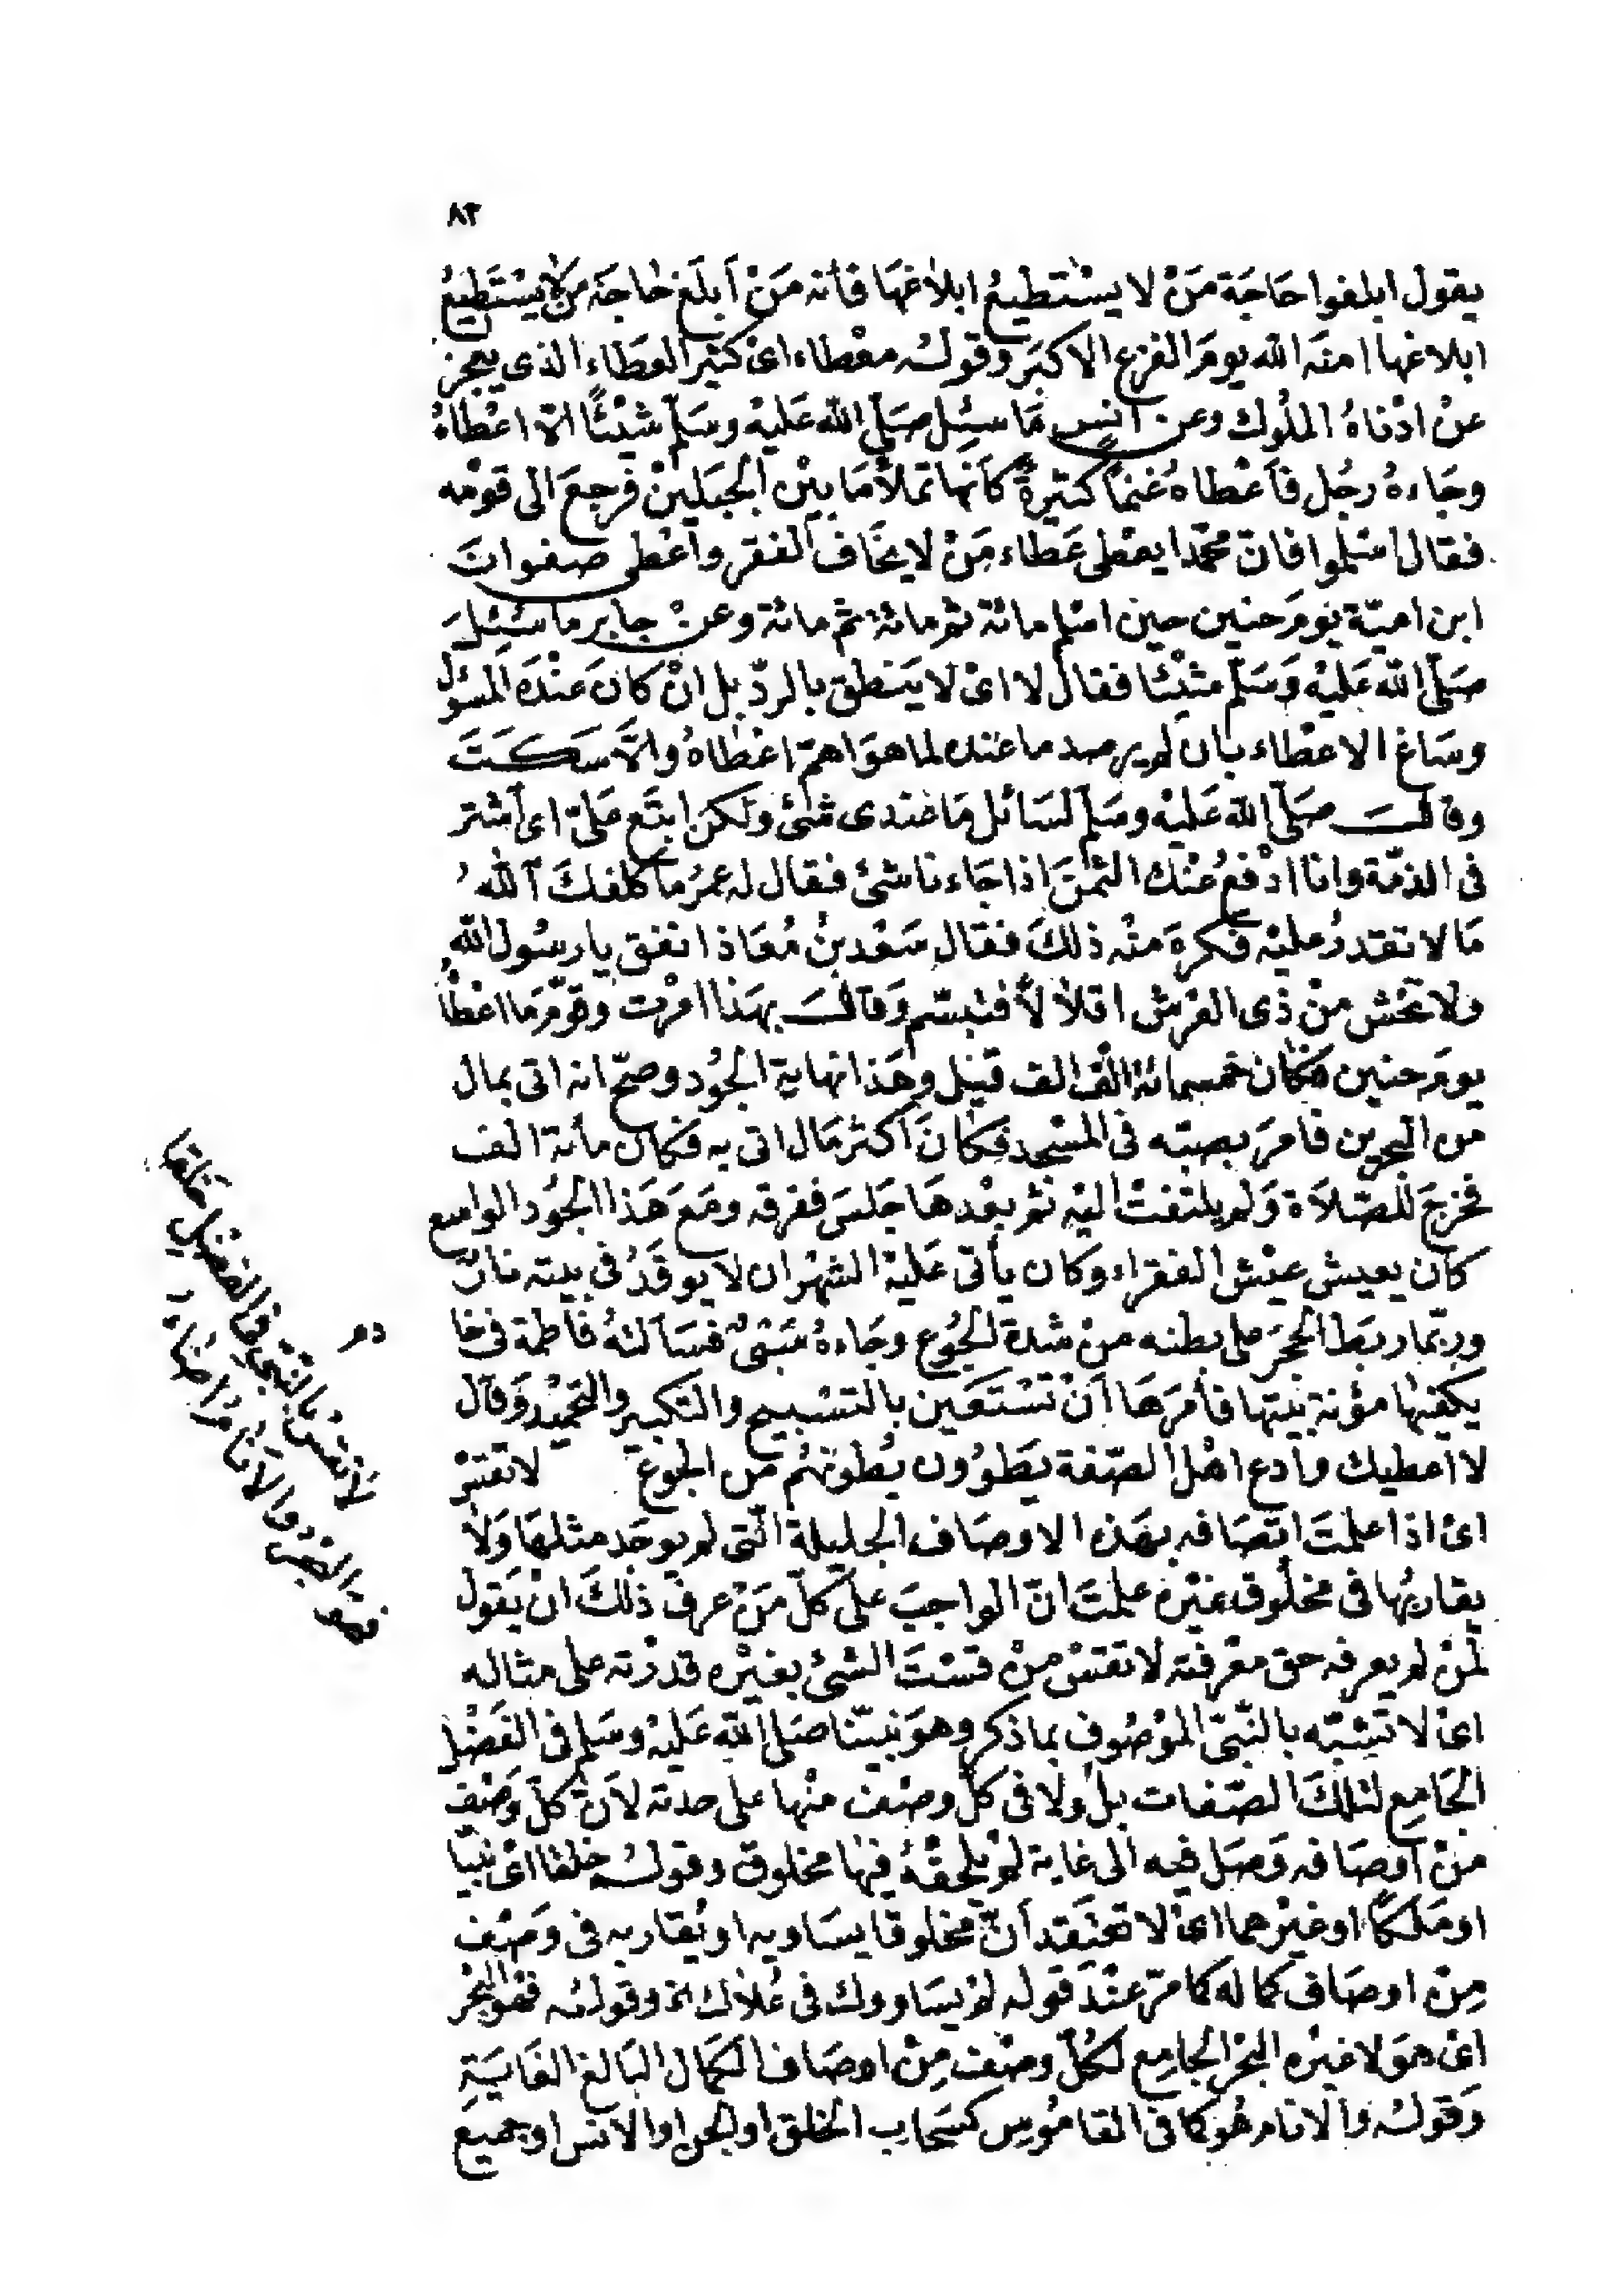 ٨٣
يقول ابلغوا حاجَة مَنْ لا يسْتطيعُ ابلاغهَا فأنه مَنْ أبلَغ حاجَة مَن لا يسْتَطيعُ
ابلاغها امنَه الله يومَ الفزع الاكبَر وقوله معْطاء اىْ كثير العطَاء الذى يعجز
عنْ ادْناهُ الملُوك وعن انس مَا سئِل صَلّى الله عَليْه وسَلّم شيْئًا الاّ اعْطاهُ
وجَاءهُ رجُل فأعْطاهُ غنماً كثيرةً كأنها تملأ مَا بيْن الجبَليْن فرجعَ الى قوْمه
فقال اسْلموا فانّ محمّدا يعْطى عَطاء مَنْ لا يخَاف الفقر واعْطى صفوانَ
ابن اميّة يَومَ حنين حين اسْلم مائة ثم مائة ثم مائة وعنْ جابر ما سُئِلَ
صَلّى الله عَليْه وَسَلّم شيْئا فقال لا اىْ لا يَنطق بالردّ بل انْ كانَ عنْدَه المسؤل
وسَاغ الاعطاء بان لم يرصد ما عنده لما هوَ اهمّ اعْطاهُ والاَّ سَكَتَ
وقالَ صَلّى الله عَليْه وسَلم لسَائل مَا عندى شئْ ولكن ابتَع عَلىّ اى اشتر
فى الذمّة وانا ادْفعُ عنْك الثمنَ اذا جَاءنا شئ فقال له عمرُ ما كلفكَ اللهُ
مَا لا تقدرُ عليْه فكرهَ منْه ذلكَ فقال سَعْد بنُ مُعَاذ انفق يا رسُول الله
ولا تخش منْ ذى العَرش اقلالاً فتبسّم وَقالَ بهَذا امرْت وقوّمَ مَا اعْطاُ
يومَ حنين فكان خمسمائة الف الف قيْل وهَذا نهاية الجُود وصحّ انه اتى بمال
من البحرين فأمرَ بصبّه فى المسْجد فكانَ أكثر مَال اتى به فكان مأئة الف
فخرجَ للصّلاَة وَلم يلتفتْ اليْه ثم بعْدهَا جَلسَ ففرقه ومَعَ هَذا الجُود الواسع
كان يعيش عيْش الفقراء وكان يأتى عَليْه الشهْران لا يوقَدُ فى بيته نارٌ
وربّما ربَط الحجَر على بطنه منْ شدة الجُوع وجَاءهُ سَبْىٌ فسَألتهُ فاطمة فى خا
يكفيْها مؤنة بيْتها فأمَرهَا انْ تسْتَعين بالتسْبيح والتكبير والتحميْد وَقال
لا اعطيك وادع اهْل الصّفة يَطوُون بُطونهُم من الجوع لا تقسْ
اىْ اذا علمتَ اتصَافه بهَذه الاوصَاف الجليلة الّتى لم يوجَد مثلهَا وَلاَ
يقاربُها فى مخلُوق غيْره علمتَ انّ الواجبَ على كلّ مَنْ عرفَ ذلكَ انْ يَقول
لمنْ لم يعرفه حق معْرفته لا تقسْ منْ قسْتَ الشئ بغيْره قدرْته على مثاله
اىْ لا تشبّه بالنّبىّ الموْصُوف بما ذكر وهوَ نبيّنا صَلى الله عَليْه وسَلم فى الفَضْل
الجَامع لتلكَ الصّفات بل ولا فى كلّ وصْف منْها على حدته لأنّ كلّ وَصْف
منْ أوصَافه وَصَل فيه الى غاية لم يلحقْهُ فيْها مخلوق وقوله خلقا اىْ نبيّا
او مَلَكًا او غيْرهما اىْ لا تعتَقد انّ مخلوقا يسَاويه او يُقاربه فى وَصْف
مِنْ اوصَاف كماله كما مرّ عنْدَ قوله لمْ يسَاووك فى عُلاك الخ وقوله فهو البحْر
اىْ هوَ لا غيْره البحْر الجامِع لكلّ وصْف مِنْ اوصَاف الكمَال البَالغ الغَايَةِ
وَقوله والانام هُو كما فى القامُوس كسَحاب الخلق او الجن او الانس او جميع
در
لا تقسْ بالنّبىّ فى الفضْل خلقا
فهو البحرُ والأنامُ إضاءُ